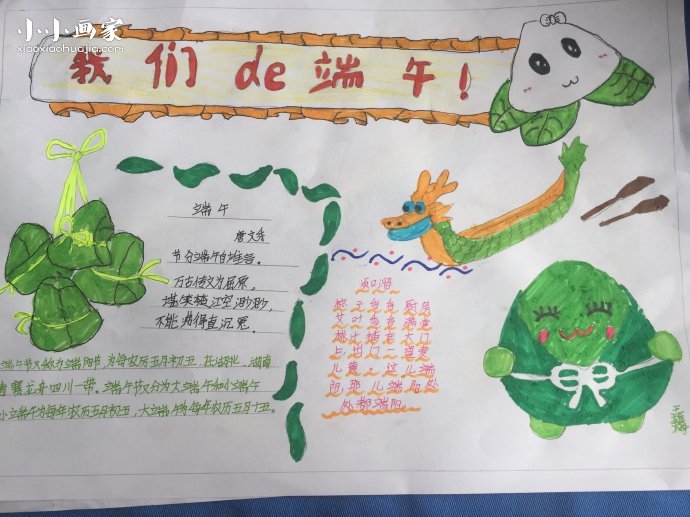 小小画家
xiaoxiaohuajia.com
我们de端午！
端午
唐 文秀
节分端午自谁言。
万古传文为屈原。
堪笑楚江空渺渺，
不能洗得直沉冤。
知溜
粽子香香厨房
艾叶香香满堂
桃汁插在大门
上出门一望麦
儿黄 这儿端
阳那儿端阳处
处都端阳。
端午节又称为端阳节，为每农历五月初五 在湖北、湖南
四川一带。端午节又分为大端午和小端午
小端午为每年农历五月初五，大端 为每年农历五月十五。